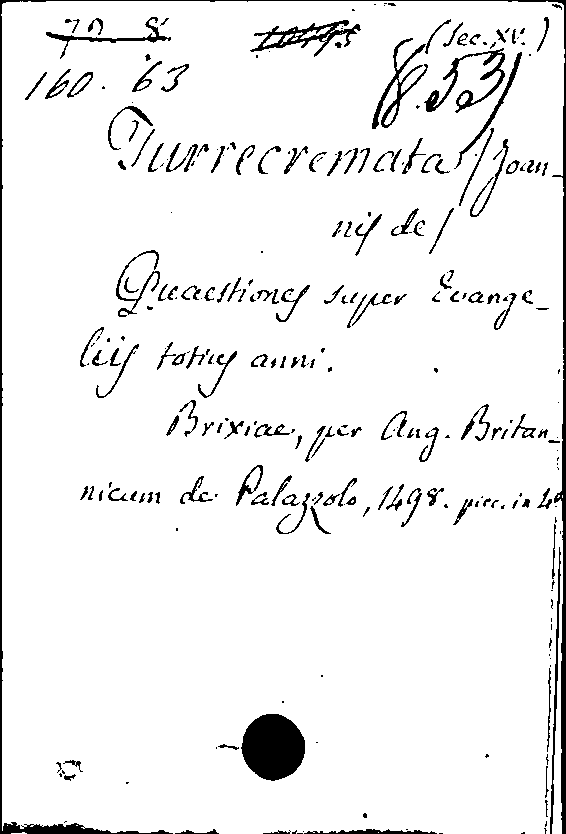 72. 8. (Sec. XV.)
160. 63 (8.53)
Turrecremata / Joan-
nis de /
Quaestiones super Evange-
liis totius anni.
Brixiae, per Ang. Britan-
nicum de Palazzolo, 1498. picc. in 4°